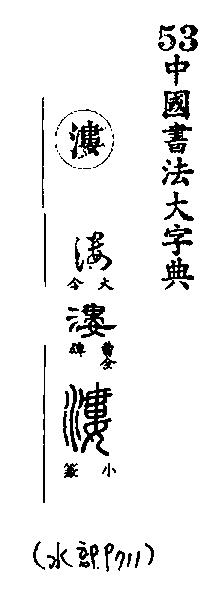 53中國書法大字典
漊
漊
大令
漊
曹全碑
漊
小篆
(水部.P711)